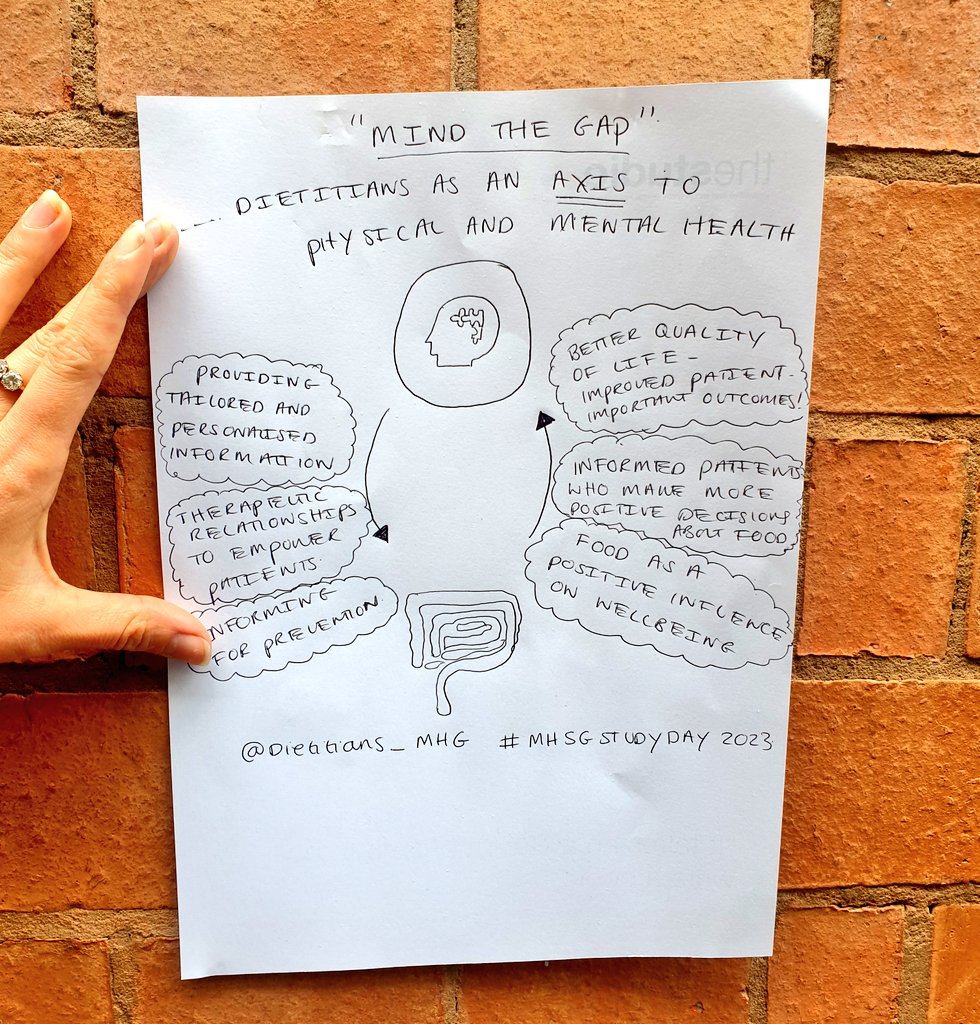 "MIND THE GAP"
DIETITIANS AS AN AXIS TO
PHYSICAL AND MENTAL HEALTH
PROVIDING
TAILORED AND
PERSONALISED
INFORMATION
THERAPEUTIC
RELATIONSHIPS
TO EMPOWER
PATIENTS
INFORMING
FOR PREVENTION
BETTER QUALITY
OF LIFE -
IMPROVED PATIENT-
IMPORTANT OUTCOMES!
INFORMED PATIENTS
WHO MAKE MORE
POSITIVE DECISIONS
ABOUT FOOD
FOOD AS A
POSITIVE INFLUENCE
ON WELLBEING
@Dietitians_MHG #MHSGSTUDYDAY 2023
thestudio